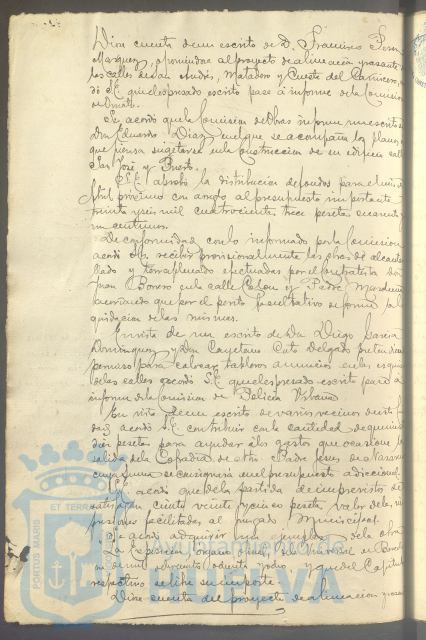 Dióse cuenta de un escrito de D. Francisco Perez
Marquez, oponiendose al proyecto de alineación y rasante
las calles de San Andrés, Matadero y Cuesta del Carnicero,
S.E. que el expresado escrito pase á informe de la Comision
de Ornato.
Se acordó que la Comision de Obras informe un escrito de
Don Eduardo Diaz en el que se acompaña los planos
que piensa sugetarse en la construccion de su edificio calle
San José y Puerto.
S.E. aprobó la distribucion de fondos para el mes de
Abril proximo con arreglo al presupuesto importante
treinta y seis mil cuatrocientas trece pesetas cuarenta y
un centimos.
De conformidad con lo informado por la Comision
acordó S.E. recibir provisionalmente las obras de alcanta
llado y terraplenado efectuadas por el contratista don
Juan Borrero en la calle Colon y Pedro
acordando que por el perito facultativo se forme la li
quidacion de las mismas.
En vista de un escrito de Don Diego Garcia
Dominguez y Don Cayetano Cuto Delgado pretendiendo
permiso para colocar tableros anuncios en las esquinas
de las calles acordó S.E. que el expresado escrito pase á
informe de la Comision de Policia Urbana
En vista de un escrito de varios vecinos de esta
acordó S.E. contribuir con la cantidad de
pesetas para ayudar á los gastos que ocasione la
salida de la Cofradia de Ntro. Padre Jesus de Nazareno
cuya suma se consignará en el presupuesto adicional.
Se acordó que de la partida de imprevistos se
satisfagan ciento veinte y cinco pesetas valor de im
presiones facilitadas al Juzgado Municipal.
Se acordó adquirir un ejemplar de la obra
La Exposicion, organo oficial, de la Universal de Barcelona
de mil ochocientos ochenta y ocho, y que del Capitulo
respectivo se libre su importe.
Dióse cuenta del proyecto de alineacion y rasante
PORTUS MARIS ET TERRAE
Ayuntamiento de
HUELVA